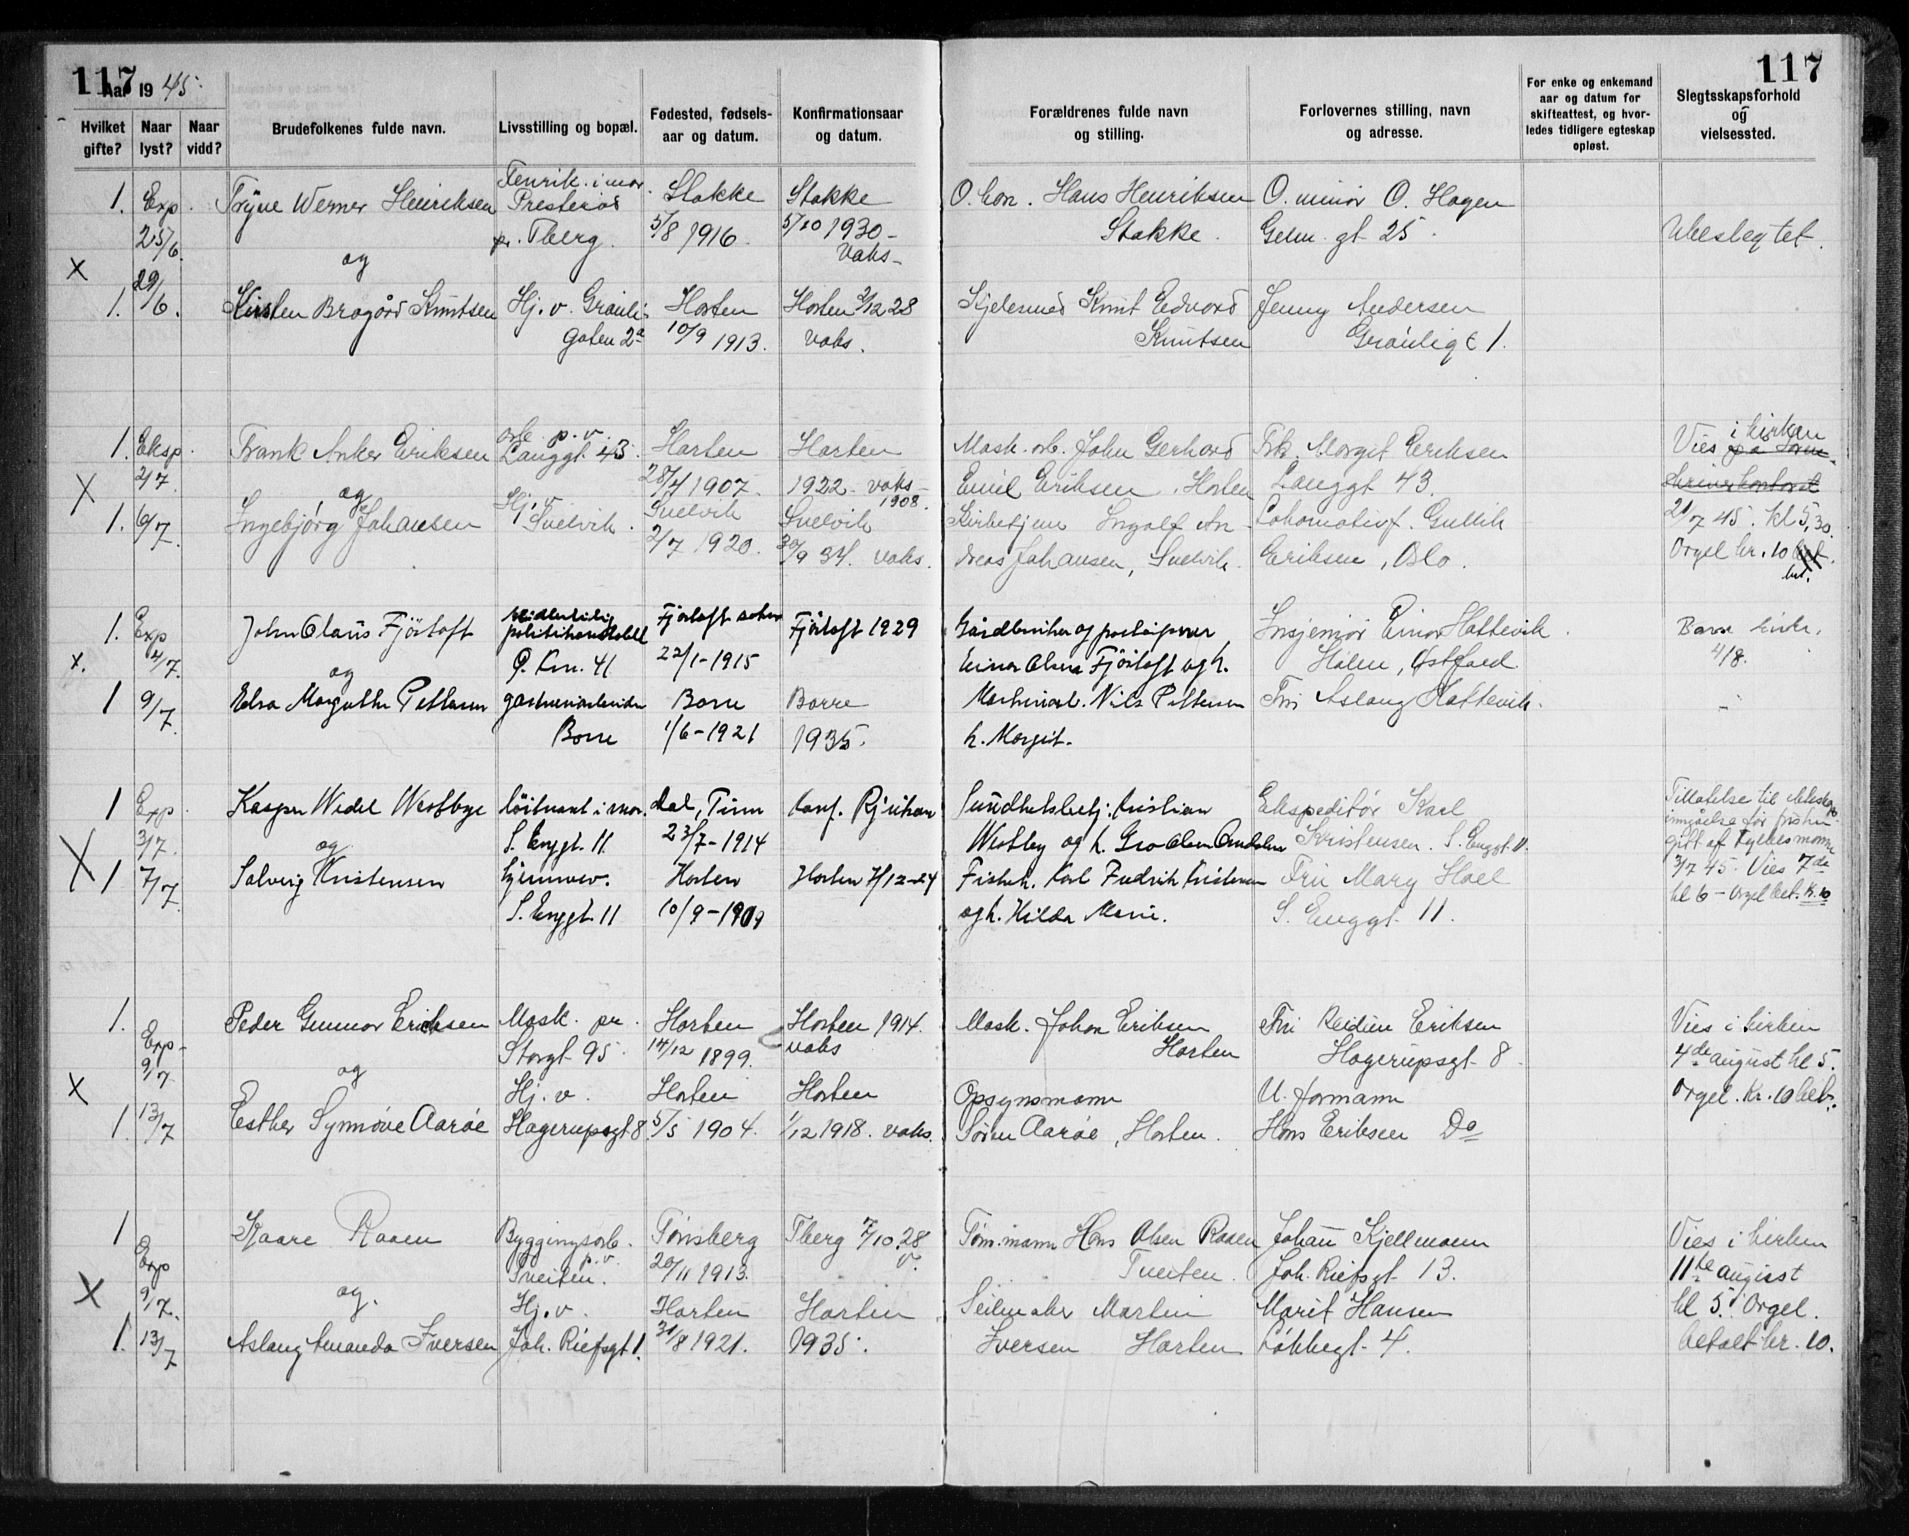 117
117
Aar 1945.
Hvilket gifte?
Naar lyst?
Naar vidd?
Brudefolkenes fulde navn.
Livsstilling og bopæl.
Fødested, fødsels-
aar og datum.
Konfirmationsaar
og datum.
Forældrenes fulde navn
og stilling.
Forlovernes stilling, navn
og adresse.
For enke og enkemand
aar og datum for
skifteattest, og hvor-
ledes tidligere egteskap
opløst.
Slegtsskapsforhold
og
vielsessted.
1. Exp. Trygve Werner Henriksen Fenrik i mar. Stokke Stokke O. Hans Henriksen O. minør O. Hagen
25/6 pr. Tberg. 5/8 1916. 5/10 1930 - Stokke. gt 25. Ubeslegtet.
x og vaks -
1. 29/6. Kirsten Bragård Knutsen Hj. v. Grønli- Horten Horten 2/12 28 Knut Edvard Jenny Andersen
gaten 2a 10/9 1913. vaks. Knutsen Grønligt 1.
1. Eksp. Frank Anker Eriksen arb. p. v. Langgt 43. Horten Horten Mask. arb. John Gerhard Frk. Margit Eriksen Vies i kirken
x 2/7 og 28/4 1907. 1922 - vaks - 1908. Emil Eriksen, Horten Langgt 43.
1. 6/7. Ingebjørg Johansen Hj. v. Svelvik. Svelvik Svelvik Kirketjener Ingolf An- Lokomotivf. Gullik 21/7 45. kl 5,30.
2/7 1920. 30/9 34. vaks. dreas Johansen, Svelvik. Eriksen, Oslo. Orgel kr. 10 bet.
1. Exp John Olaus Fjörtoft Midlertidig politikonstabel Fjörtoft Fjörtoft 1929 Gårdbruker og Insjeniør Einar Hattevik Borre kirke.
x. 4/7. og 22/1-1915 Einar Olsen Fjörtoft og h. Hølen, Østfold 4/8.
1 9/7. Elsa Margrethe Pettersen gartneriarbeider Borre Borre Nils Pettersen Fru Aslaug Hattevik. -
Borre 1/6-1921 1935. h. Margit.
1 Exp. Kasper Wedel Westbye Løitnant i mar. Dal, Tinn konf. Rjukan Kristian Ekspeditør Karl Tillatelse til ekteskaps-
3/7. og S. Enggt. 11 23/7-1914 Westby og h. Gro Olsen Kristensen. S. Enggt 11. inngåelse før
x 1 7/7 Solveig Kristensen hjemmev. Horten Horten 7/12-24 Fiskeh. Karl Fredrik Kristensen Fru Mary Hoel 3/7 45. Vies 7de
S. Enggt 11 10/9-1909 og h. Hilda Marie. S. Enggt. 11. kl 6 - Orgel bet. kr. 10
1. Exp- Peder Gunnar Eriksen Mask. pr. Horten Horten 1914. Mask. Johan Eriksen Fru Reidun Eriksen Vies i kirken
9/7 og Storgt 95. 14/12 1899. vaks Horten Hagerupsgt 8. 4de august kl 5.
x Hj. v. Horten Horten Opsynsmann U. formann Orgel. Kr. 10 bet.
1. 13/7 Esther Synnøve Aarøe Hagerupsgt 8 5/5 1904. 1/12 1918. vaks. Søren Aarøe, Horten. Hans Eriksen Do
1 Exp Kaare Raaen Byggingsarb. p.v. Tønsberg Tberg 7/10.28 Tøm.mann Hans Olsen Raaen Johan Kjellmann Vies i kirken
9/7. og. Tveiten. 20/11 1913. v. Tveiten. Joh. Riefsgt 13. 11te august
x Hj. v. Horten Horten Seilmaker Martin Marit Hansen kl 5. Orgel.
1. 13/7 Aslaug Amanda Iversen Joh. Riefsgt 1. 31/8 1921. 1935. Iversen Horten Løkkegt. 4. betalt kr. 10.